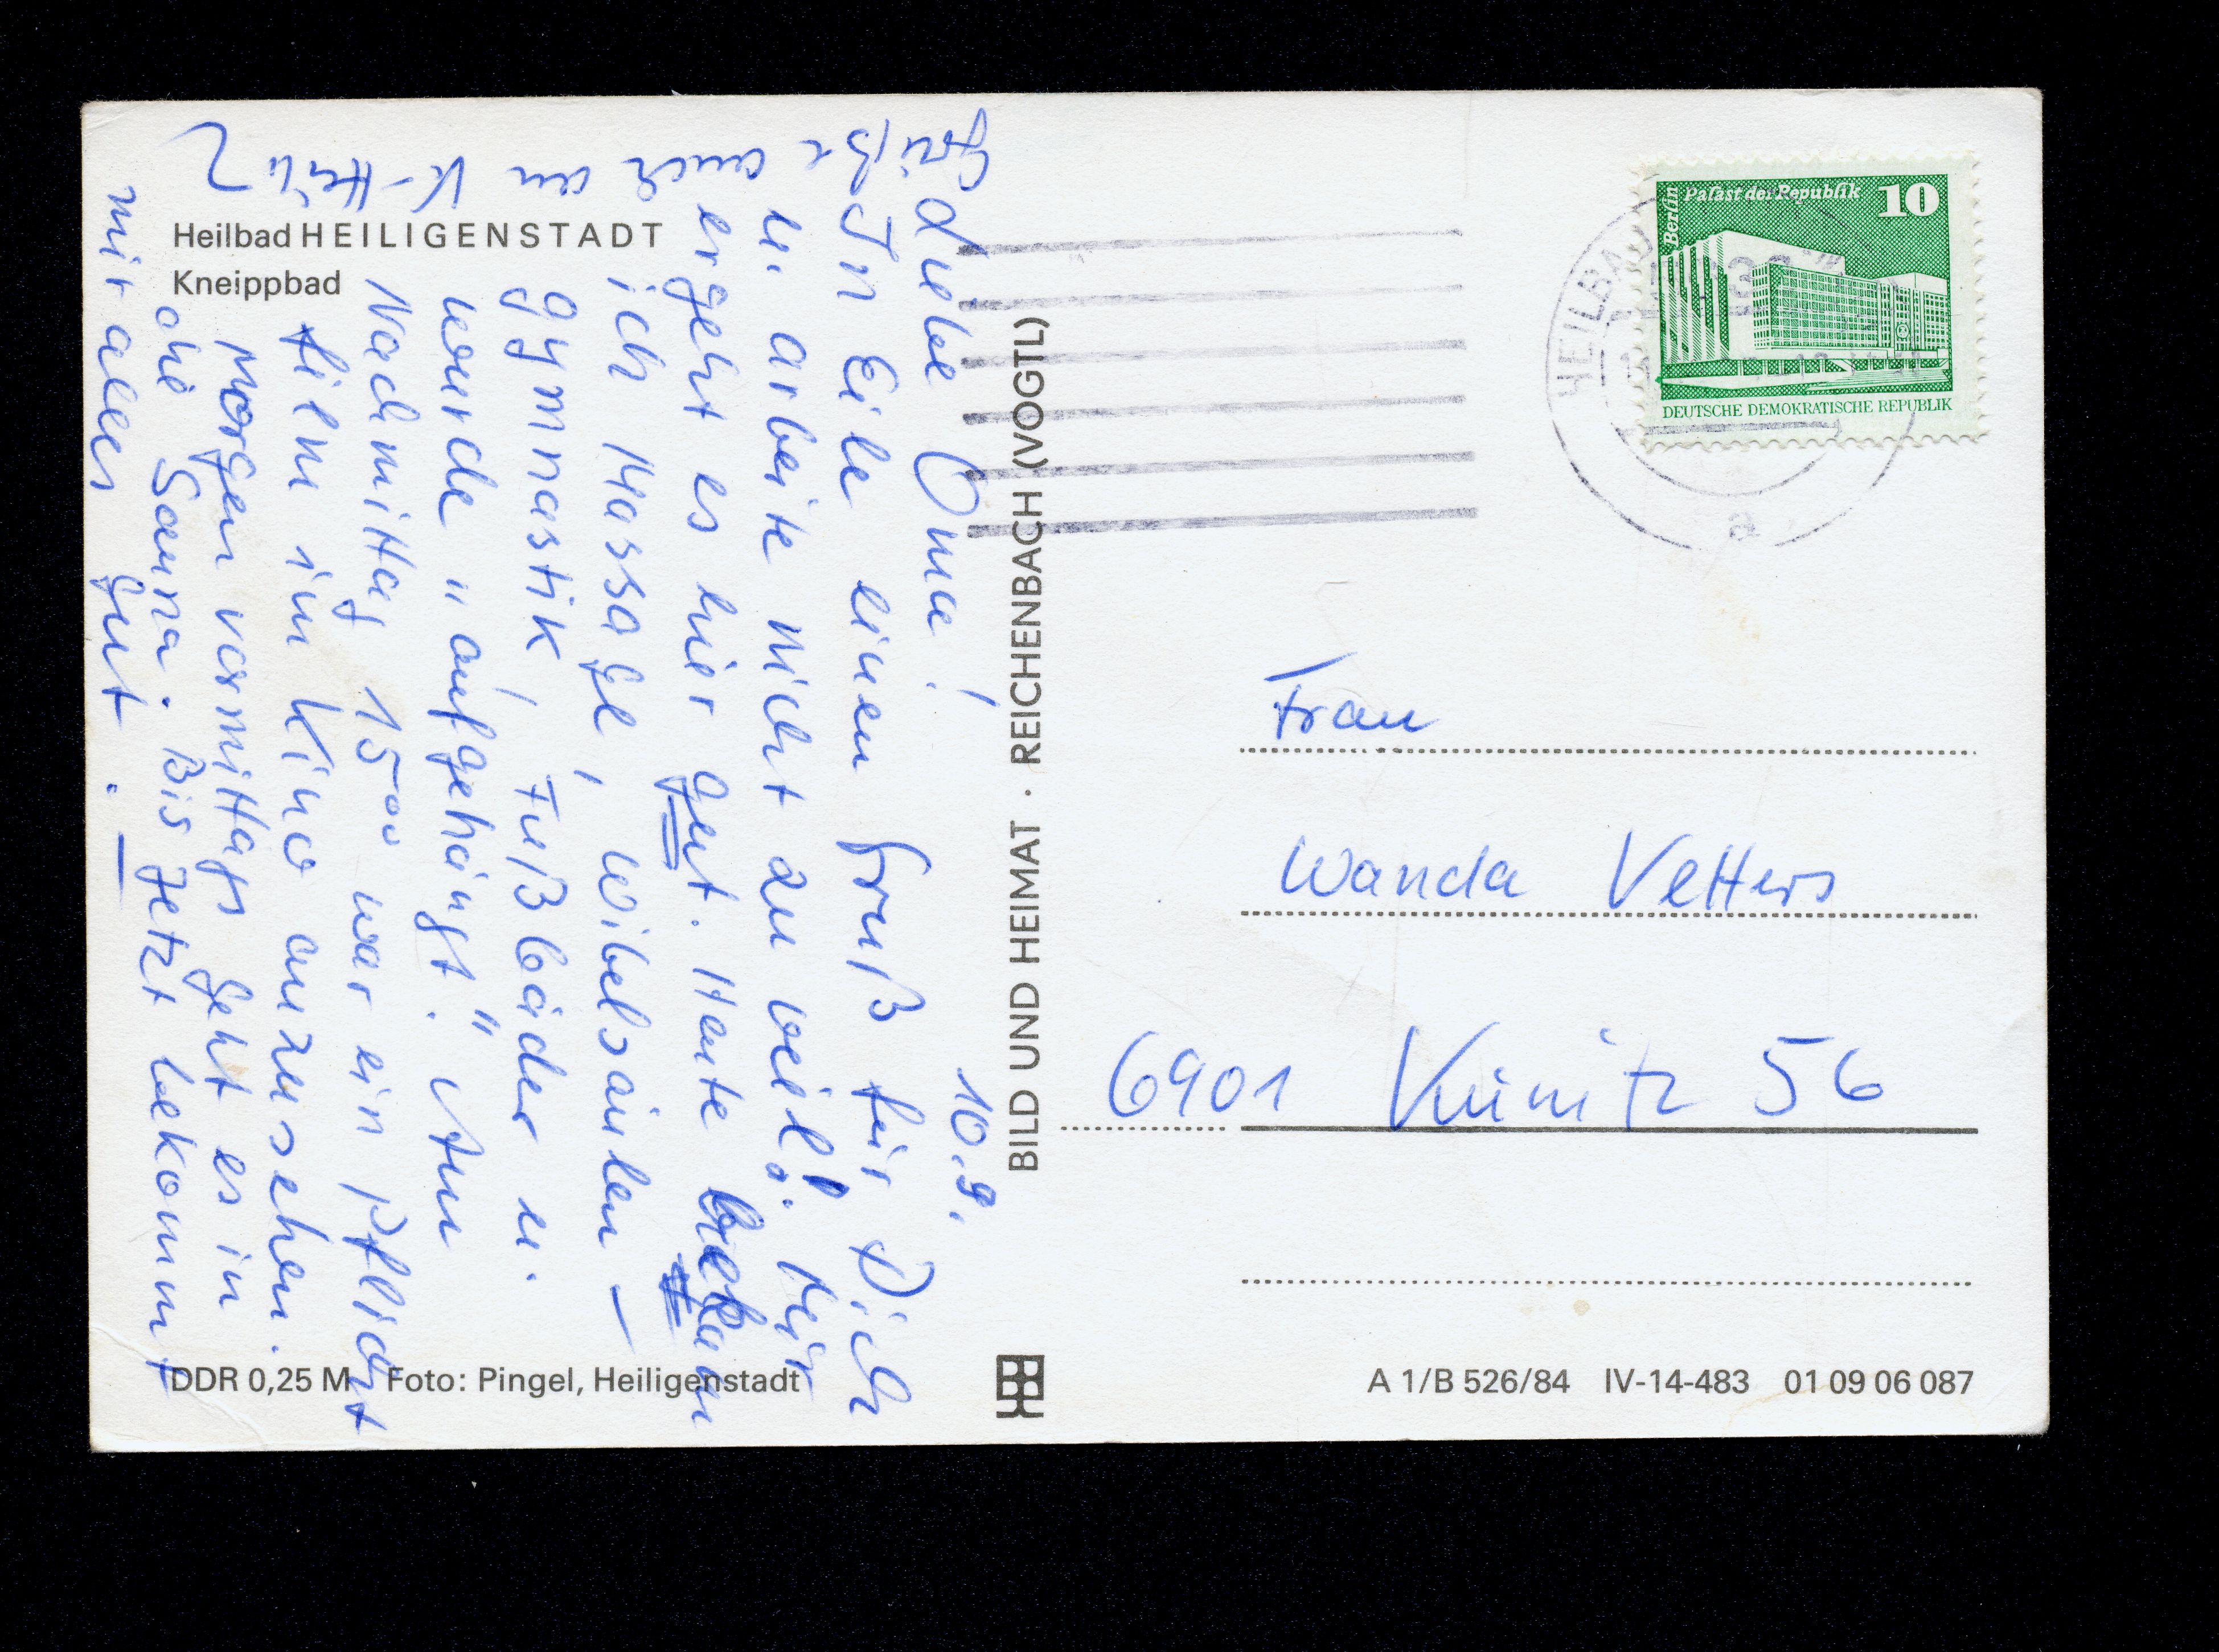 Heilbad HEILIGENSTADT
Kneippbad
10.9.
Liebe Oma!
In Eile einen Gruß für Dich
u. arbeite nicht zu viel! Mir
ergeht es hier gut. Heute bekam
ich Massage, Wibelsäulen –
gymnastik, Fußbäder u.
wurde "aufgehängt." Am
Nachmittag 15⁰⁰ war ein Pflicht
film im Kino anzusehen.
Morgen vormittags geht es in
die Sauna. Bis jetzt bekommt
mir alles gut. –
Grüße auch an
BILD UND HEIMAT · REICHENBACH (VOGTL)
Berlin
Palast der Republik
10
DEUTSCHE DEMOKRATISCHE REPUBLIK
HEILBAD
a
Frau
Wanda Vetters
6901 Kunitz 56
DDR 0,25 M Foto: Pingel, Heiligenstadt
A 1/B 526/84 IV-14-483 01 09 06 087